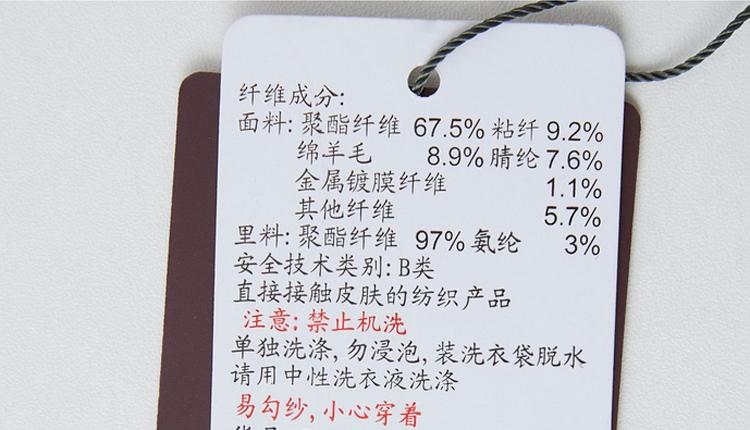 纤维成分:
面料: 聚酯纤维 67.5% 粘纤 9.2%
绵羊毛 8.9% 腈纶 7.6%
金属镀膜纤维 1.1%
其他纤维 5.7%
里料: 聚酯纤维 97% 氨纶 3%
安全技术类别: B类
直接接触皮肤的纺织产品
注意: 禁止机洗
单独洗涤, 勿浸泡, 装洗衣袋脱水
请用中性洗衣液洗涤
易勾纱, 小心穿着